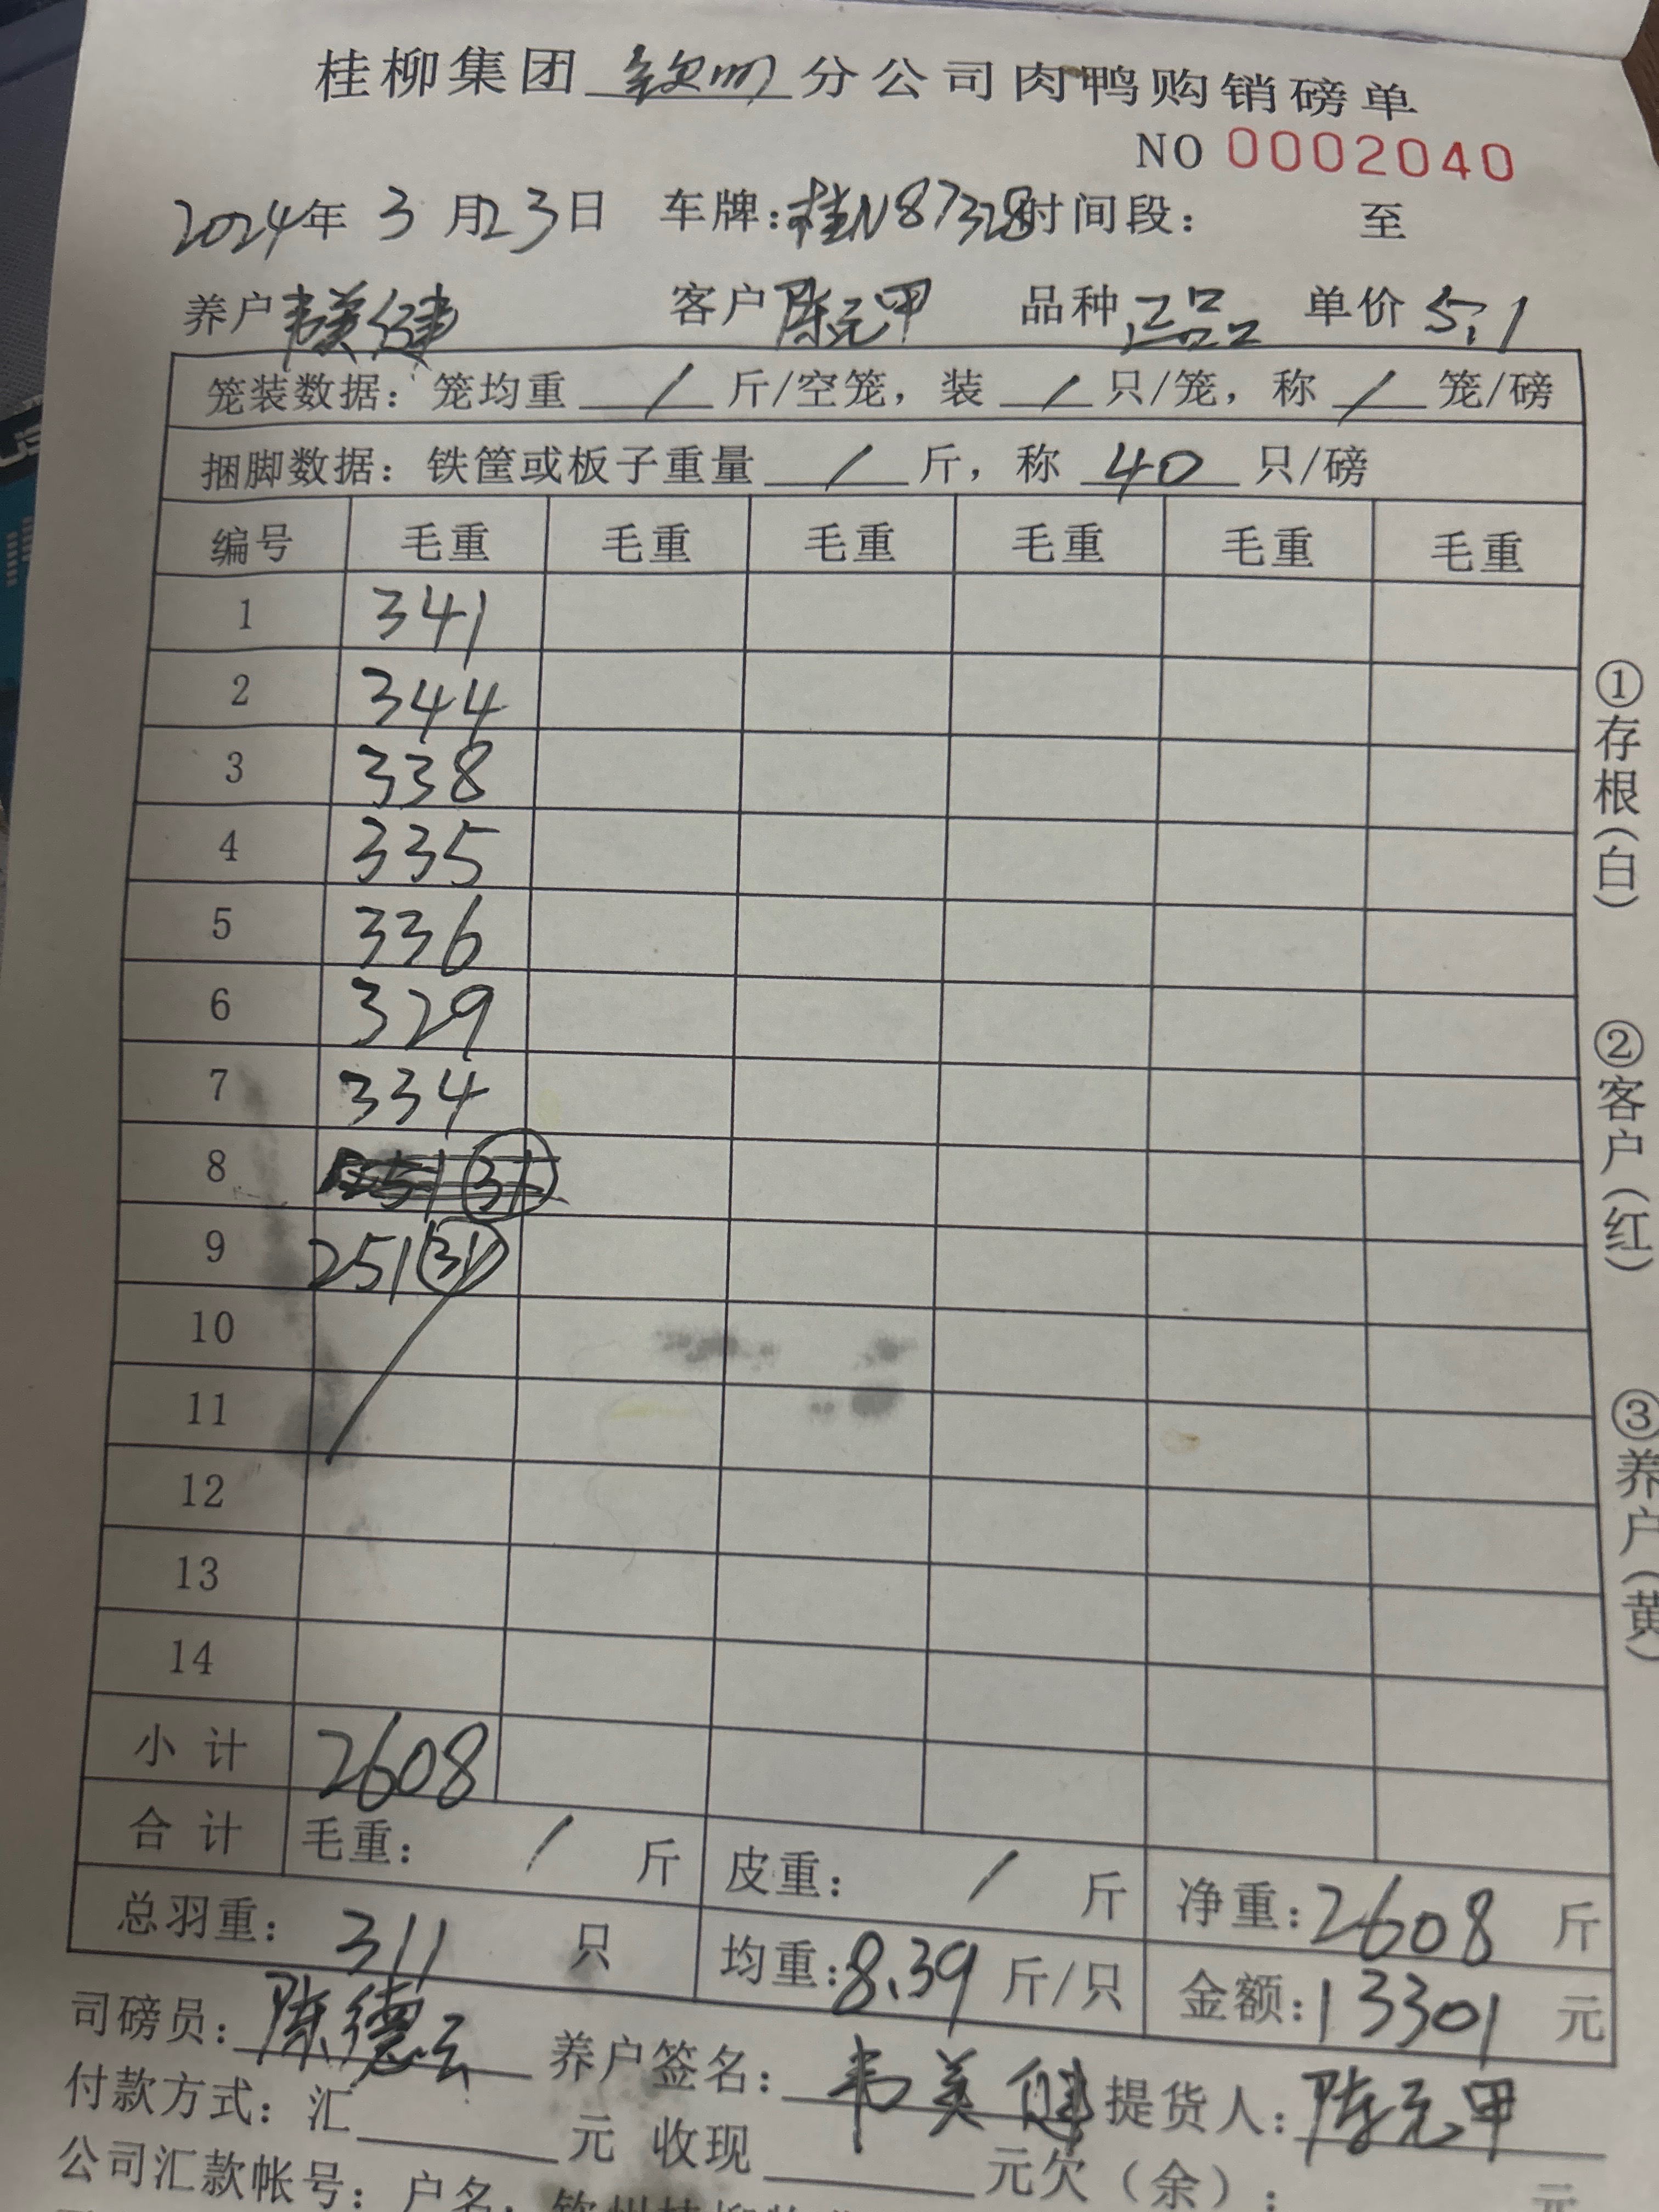 桂柳集团 钦州 分公司肉鸭购销磅单
NO 0002040
2024年 3 月23日 车牌:桂N87328时间段: 至
养户 韦美健 客户 陈元甲 品种 正品 单价 5.1
笼装数据: 笼均重 / 斤/空笼, 装 / 只/笼, 称 / 笼/磅
捆脚数据: 铁筐或板子重量 / 斤, 称 40 只/磅
编号 毛重 毛重 毛重 毛重 毛重 毛重
1 341
2 344
3 338
4 335
5 336
6 329
7 334
8 251 31
9 251 31
10
11
12
13
14
小计 2608
合计 毛重: / 斤 皮重: / 斤 净重:2608 斤
总羽重: 311 只 均重:8.39 斤/只 金额:13301 元
司磅员: 陈德云 养户签名: 韦美健 提货人: 陈元甲
付款方式: 汇 元 收现 元欠(余): 元
公司汇款帐号: 户名:
①存根(白)
②客户(红)
③养户(黄)